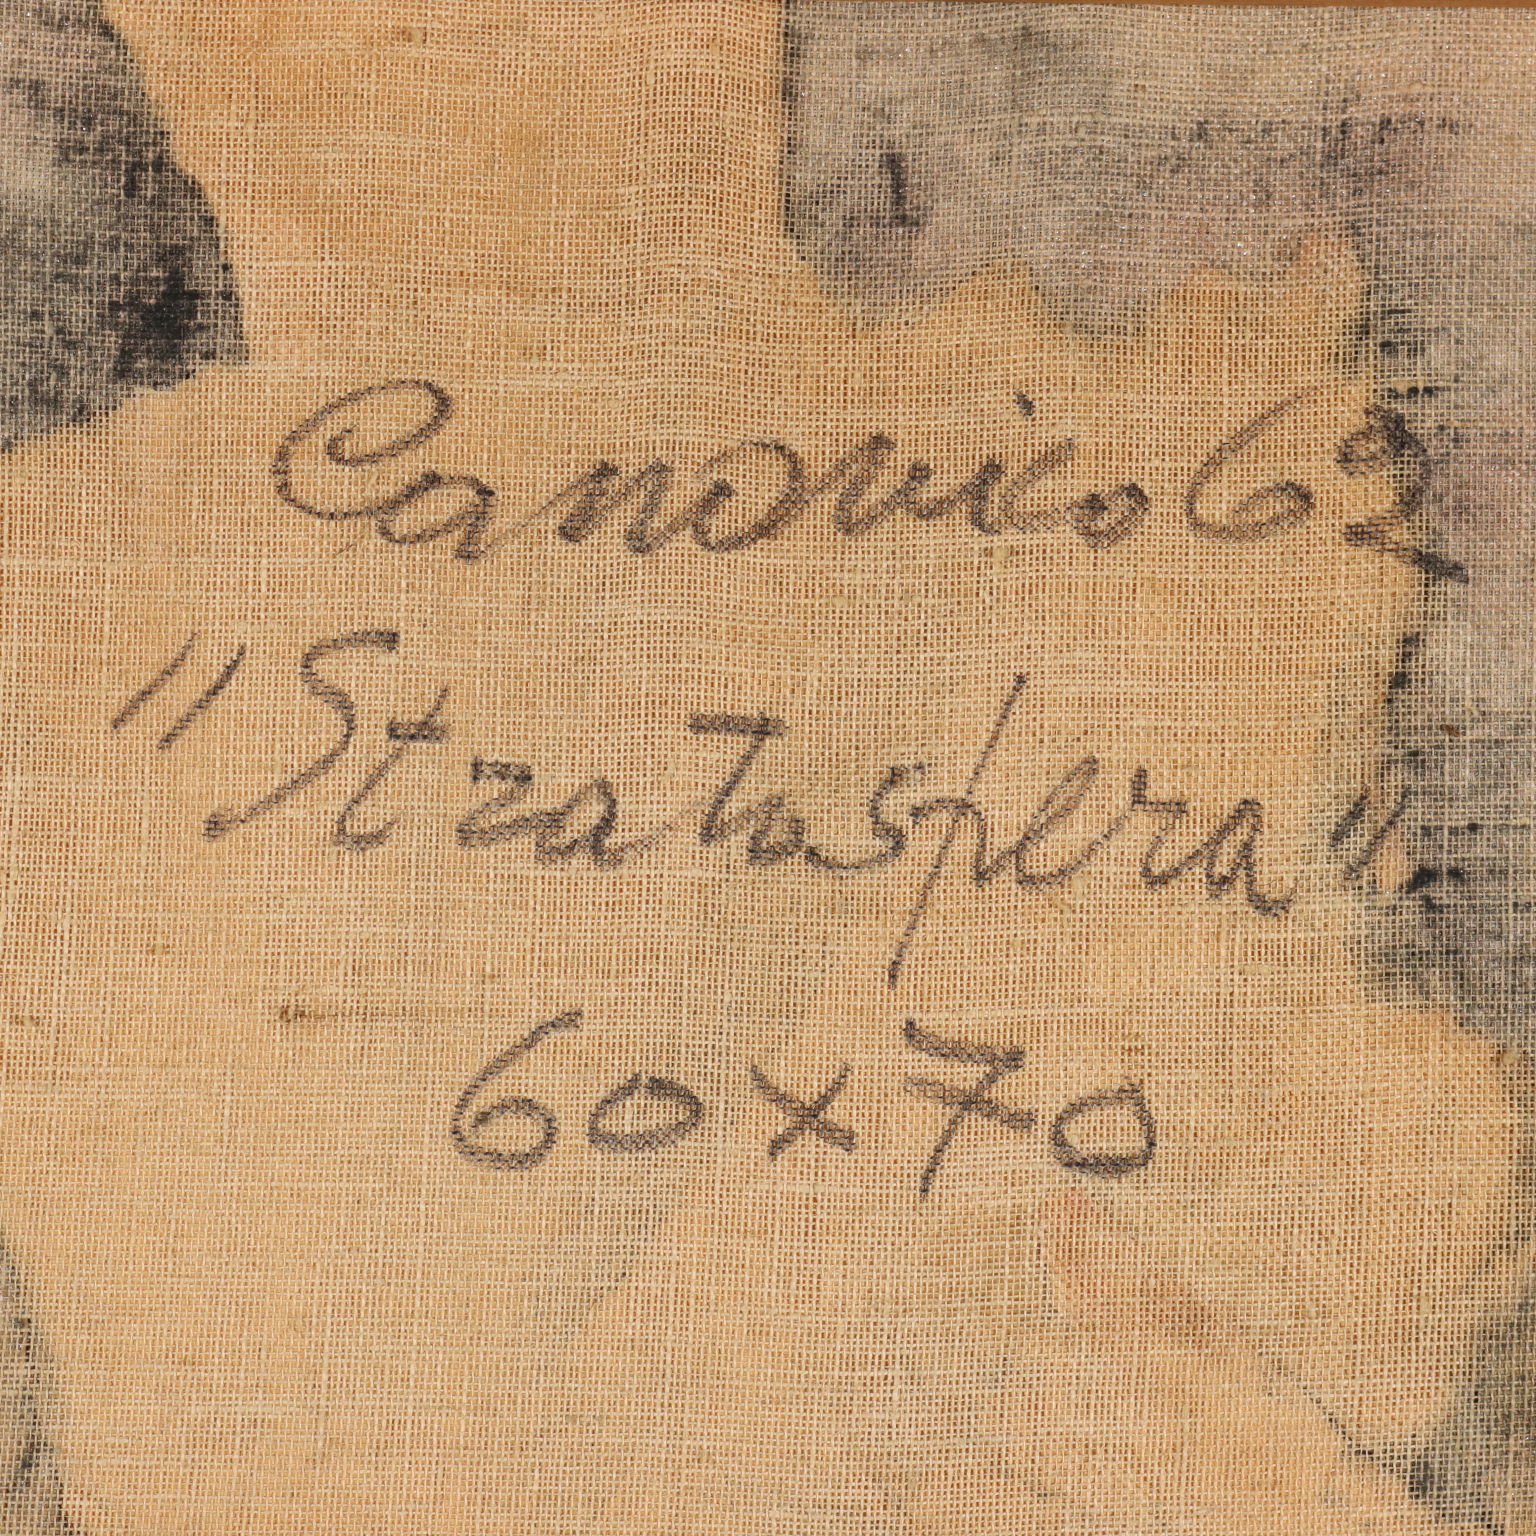 Canonico 62
"Stratasfera"
60x70